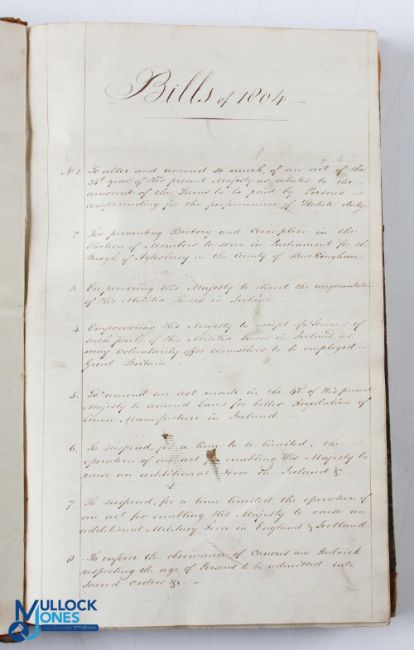 Bills of 1804
No 1. To alter and amend so much of an act of the
34th year of His present Majesty as relates to the
amount of the Sums to be paid by Persons
compounding for the performance of Statute duty
2. For preventing Bribery and Corruption in the
Election of Members to serve in Parliament for the
Borough of Aylesbury in the County of Buckingham
3. Empowering His Majesty to direct the augmentation
of His Militia Forces in Ireland.
4. Empowering His Majesty to accept of Services of
such parts of His Militia Forces in Ireland as
may voluntarily offer themselves to be employed in
Great Britain
5. To amend an act made in the of His present
Majesty to amend Laws for better Regulation of
Linen Manufacture in Ireland
6. To suspend, for a time to be limited, the
operation of an act for enabling His Majesty to
raise an additional Force in Ireland &c
7. To suspend, for a time limited, the operation of
an act for enabling His Majesty to raise an
additional Military Force in England & Scotland.
8. To enforce the observance of Canons and Rubrick
respecting the age of Persons to be admitted into
Sacred Orders &c
MULLOCK
JONES